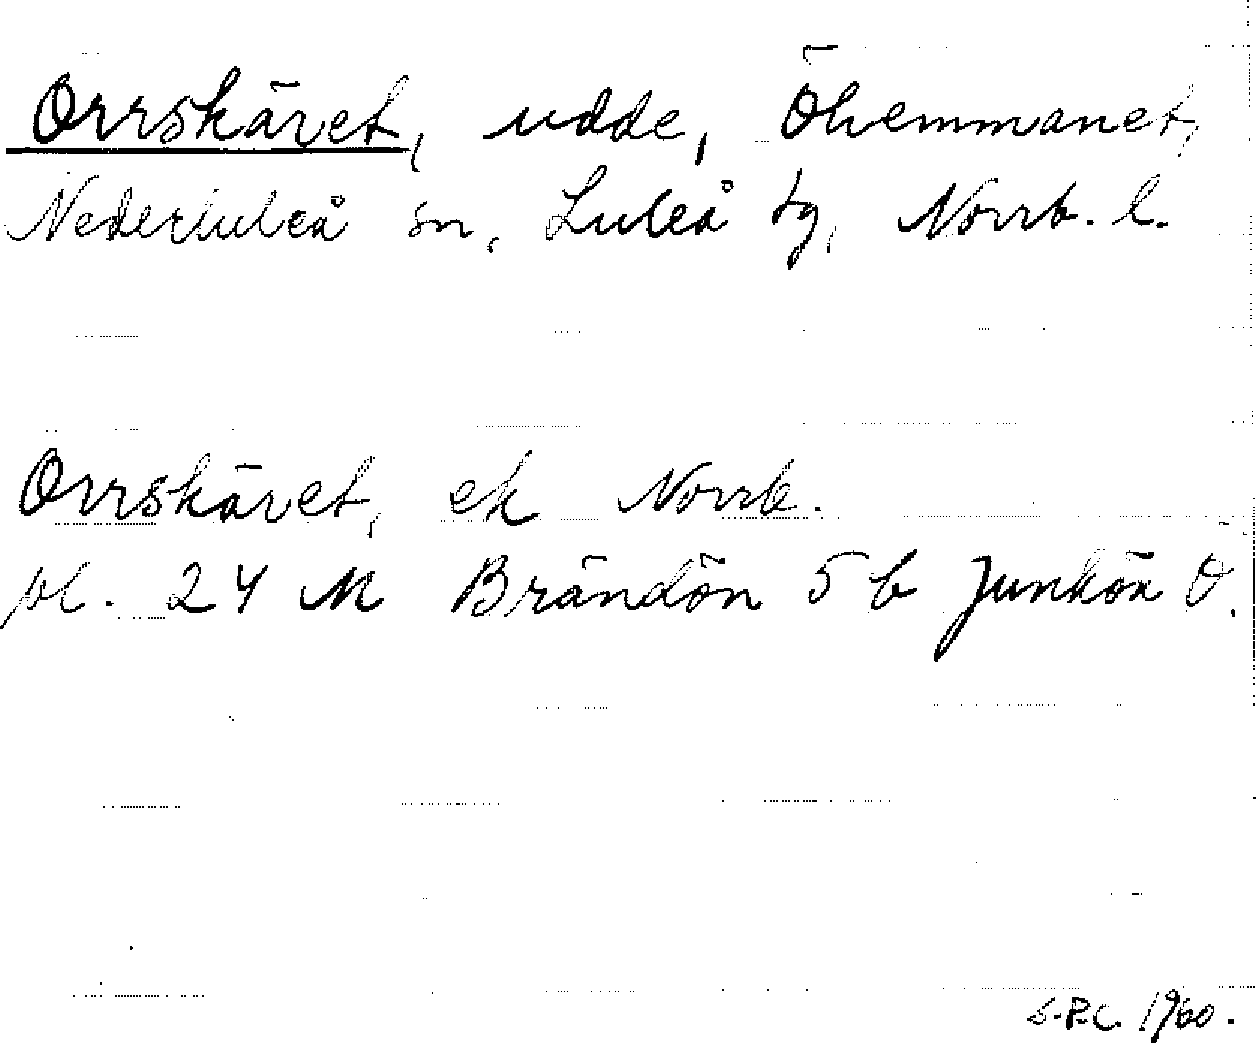 Orrskäret, udde, Öhemmanet,
Nederluleå sn, Luleå tg, Norrb. l.
Orrskäret, ek Norrb.
pl. 24 M Brändön 5 b Junkön Ö.
S.P.C. 1960.